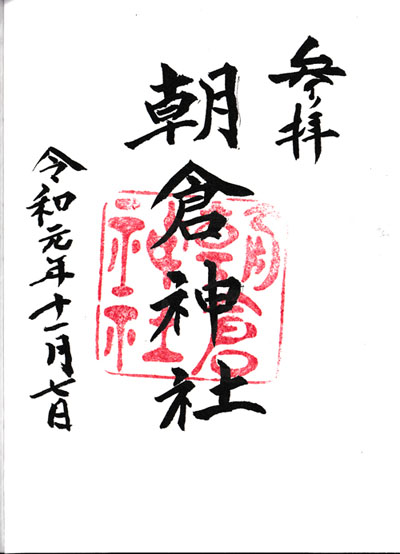 参拝
朝倉神社
朝倉神社
令和元年十一月七日